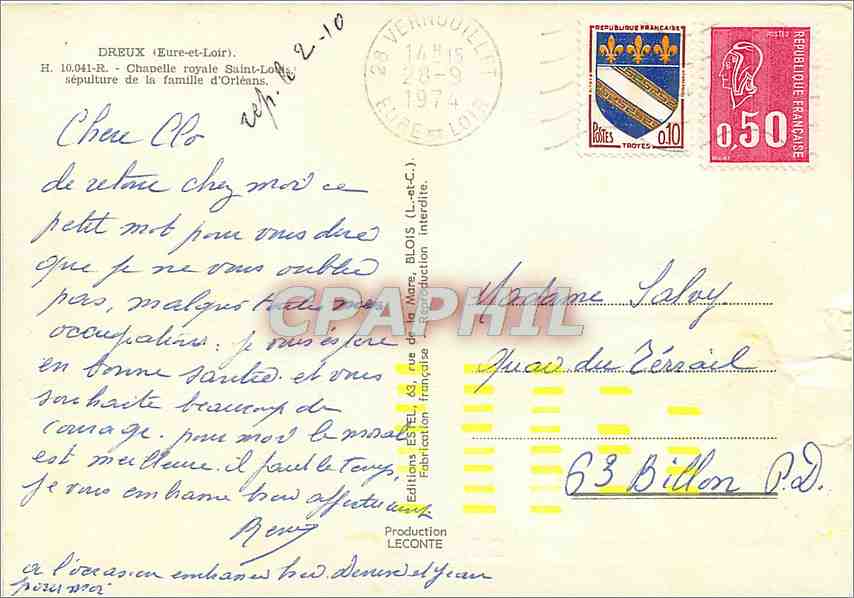 DREUX (Eure-et-Loir).
H. 10.041-R. - Chapelle royale Saint-Louis,
sépulture de la famille d'Orléans.
rep. le 2-10
28 VERNOUILLET
14 H 15
28-9
1974
EURE ET LOIR
REPUBLIQUE FRANÇAISE
POSTES
0,10
TROYES
POSTES
REPUBLIQUE FRANÇAISE
0,50
Chere Clo
de retour chez moi ce
petit mot pour vous dire
que je ne vous oublie
pas, malgres toutes mes
occupations. je vous espere
en bonne santée et vous
souhaite beaucoup de
courage. pour moi le moral
est meilleure. il faut le temps,
je vous embrasse bien affectueument
a l'occasion embrasser bien Denise et Jean
pour moi
Editions ESTEL, 63, rue de la Mare, BLOIS (L.-et-C.).
Fabrication française - Reproduction interdite.
Production
LECONTE
CPAPHIL
Madame Salvy
Quai du Térrail
63 Billon P.D.